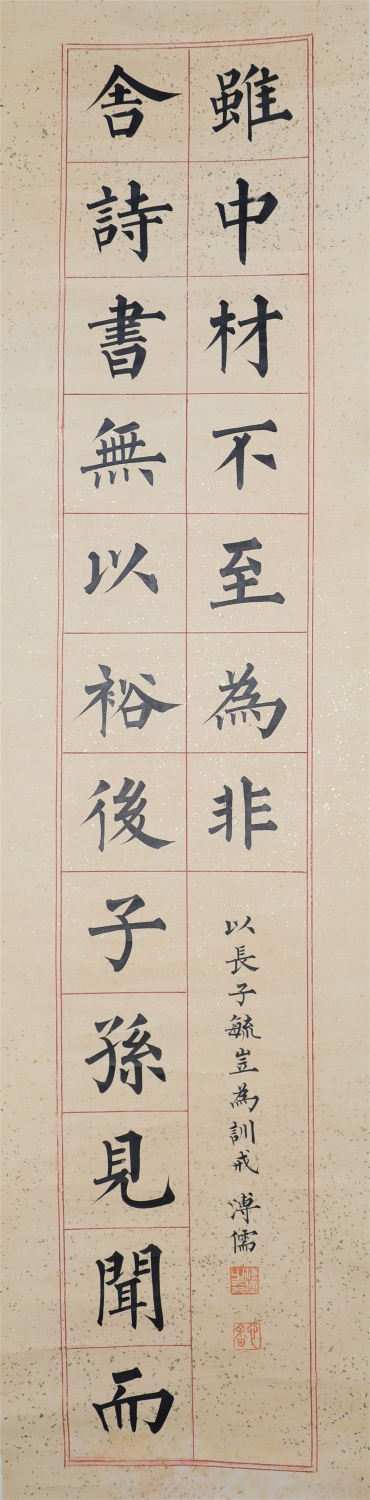 舍詩書無以裕後子孫見聞而
雖中材不至為非
以長子毓岦為訓戒 溥儒